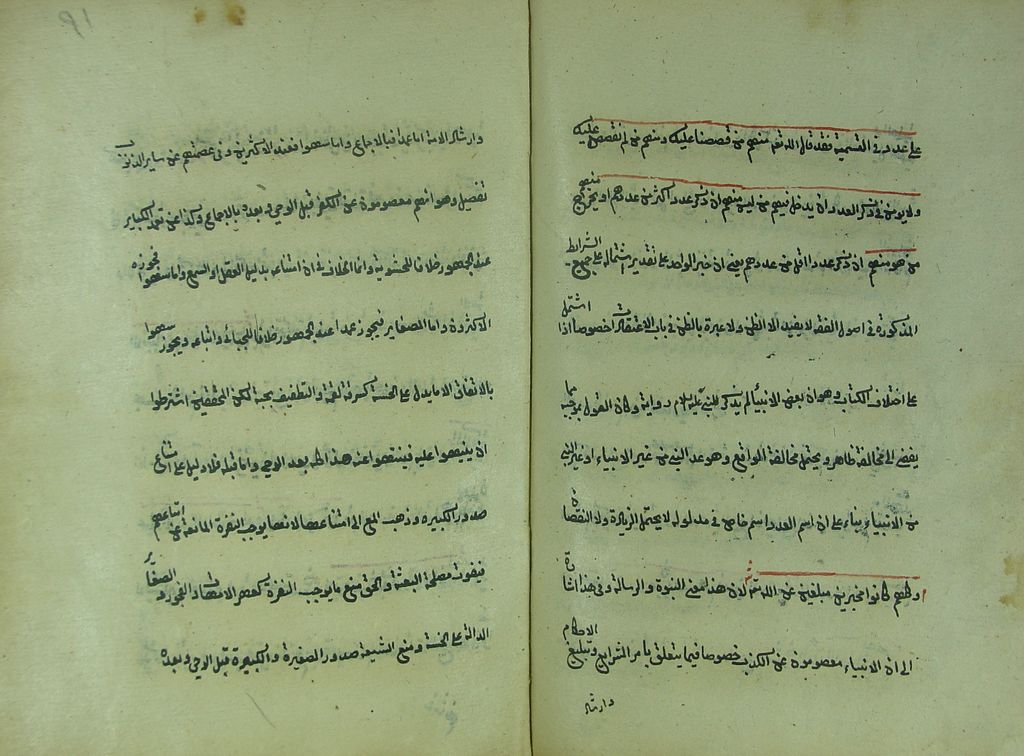 على عدد في التسمية فقد قال الله تعالى منهم من قصصنا عليك ومنهم من لم نقصص عليك
ولا يؤمن في ذكر العدد ان يدخل فيهم من ليس منهم ان ذكر عدد اكثر من عددهم او يخرج منهم
من هو منهم ان ذكر عددا اقل من عددهم يعني ان خبر الواحد على تقدير اشتماله على جميع الشرايط
المذكورة في اصول الفقه لا يفيد الا الظن ولا عبرة بالظن في باب الاعتقاديات خصوصا اذا اشتمل
على اختلاف الكتاب وهو ان بعض الانبياء لم يذكر للنبي عليه السلام رواية وكان القول بموجبه مما
يفضي الى مخالفة ظاهر ويحتمل مخالفة الواقع وهو عد النبي من غير الانبياء او غير النبي
من الانبياء بناء على ان اسم العدد اسم خاص في مدلوله لا يحتمل الزيادة ولا النقصان
وكلهم كانوا مخبرين مبلغين عن الله تعالى لان هذا معنى النبوة والرسالة وفي هذا اشارة
الى ان الانبياء معصومون عن الكذب خصوصا فيما يتعلق بامر الشرايع وتبليغ الاحكام
وارشاد
وارشاد الامة اما عمدا فبالاجماع واما سهوا فعند الاكثرين وفي عصمتهم عن ساير الذنوب
تفصيل وهو انهم معصومون عن الكفر قبل الوحي وبعده بالاجماع وكذا عن تعمد الكباير
عند الجمهور خلافا للحشوية وانما الخلاف في ان امتناعه بدليل العقل او السمع واما سهوا فجوزه
الاكثرون واما الصغاير فيجوز عمدا عند الجمهور خلافا للجبائي واتباعه ويجوز سهوا
بالاتفاق الا ما يدل على الخسة كسرقة لقمة والتطفيف بحبة لكن المحققين اشترطوا
ان ينبهوا عليه فينتهوا عنه هذا كله بعد الوحي واما قبله فلا دليل على امتناع
صدور الكبيره وذهب المع الى امتناعها لانها يوجب النفرة المانعة عن اتباعهم
فيفوت مصلحة البعثة والحق منع ما يوجب النفرة كعهر الامهات والفجور والصغاير
الدالة على الخسة ومنع الشيعة صدور الصغيرة والكبيرة قبل الوحي وبعده